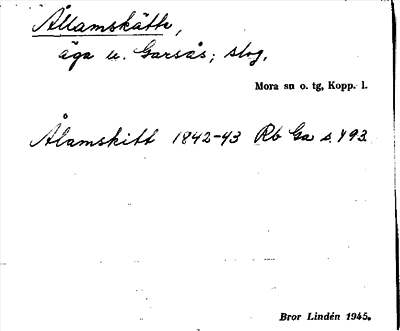 Ållamskätte,
äga u. Garsås; skog.
Mora sn o. tg, Kopp. l.
Ålamskitt 1842-43 Rb Ga s. 493
Bror Lindén 1945.